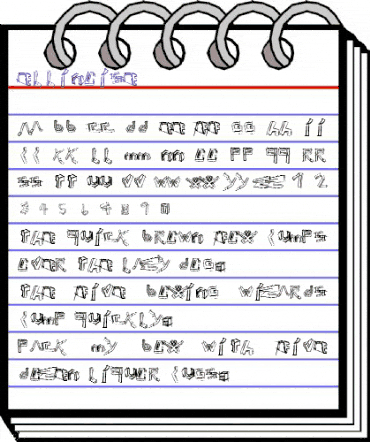 Aa bb cc dd ee ff gg hh ii
jj kk ll mm nn oo pp qq rr
ss tt uu vv ww xx yy zz 1 2
3 4 5 6 7 8 9 0
the quick brown fox jumps
over the lazy dog.
the five boxing wizards
jump quickly.
pack my box with five
dozen liquor jugs.